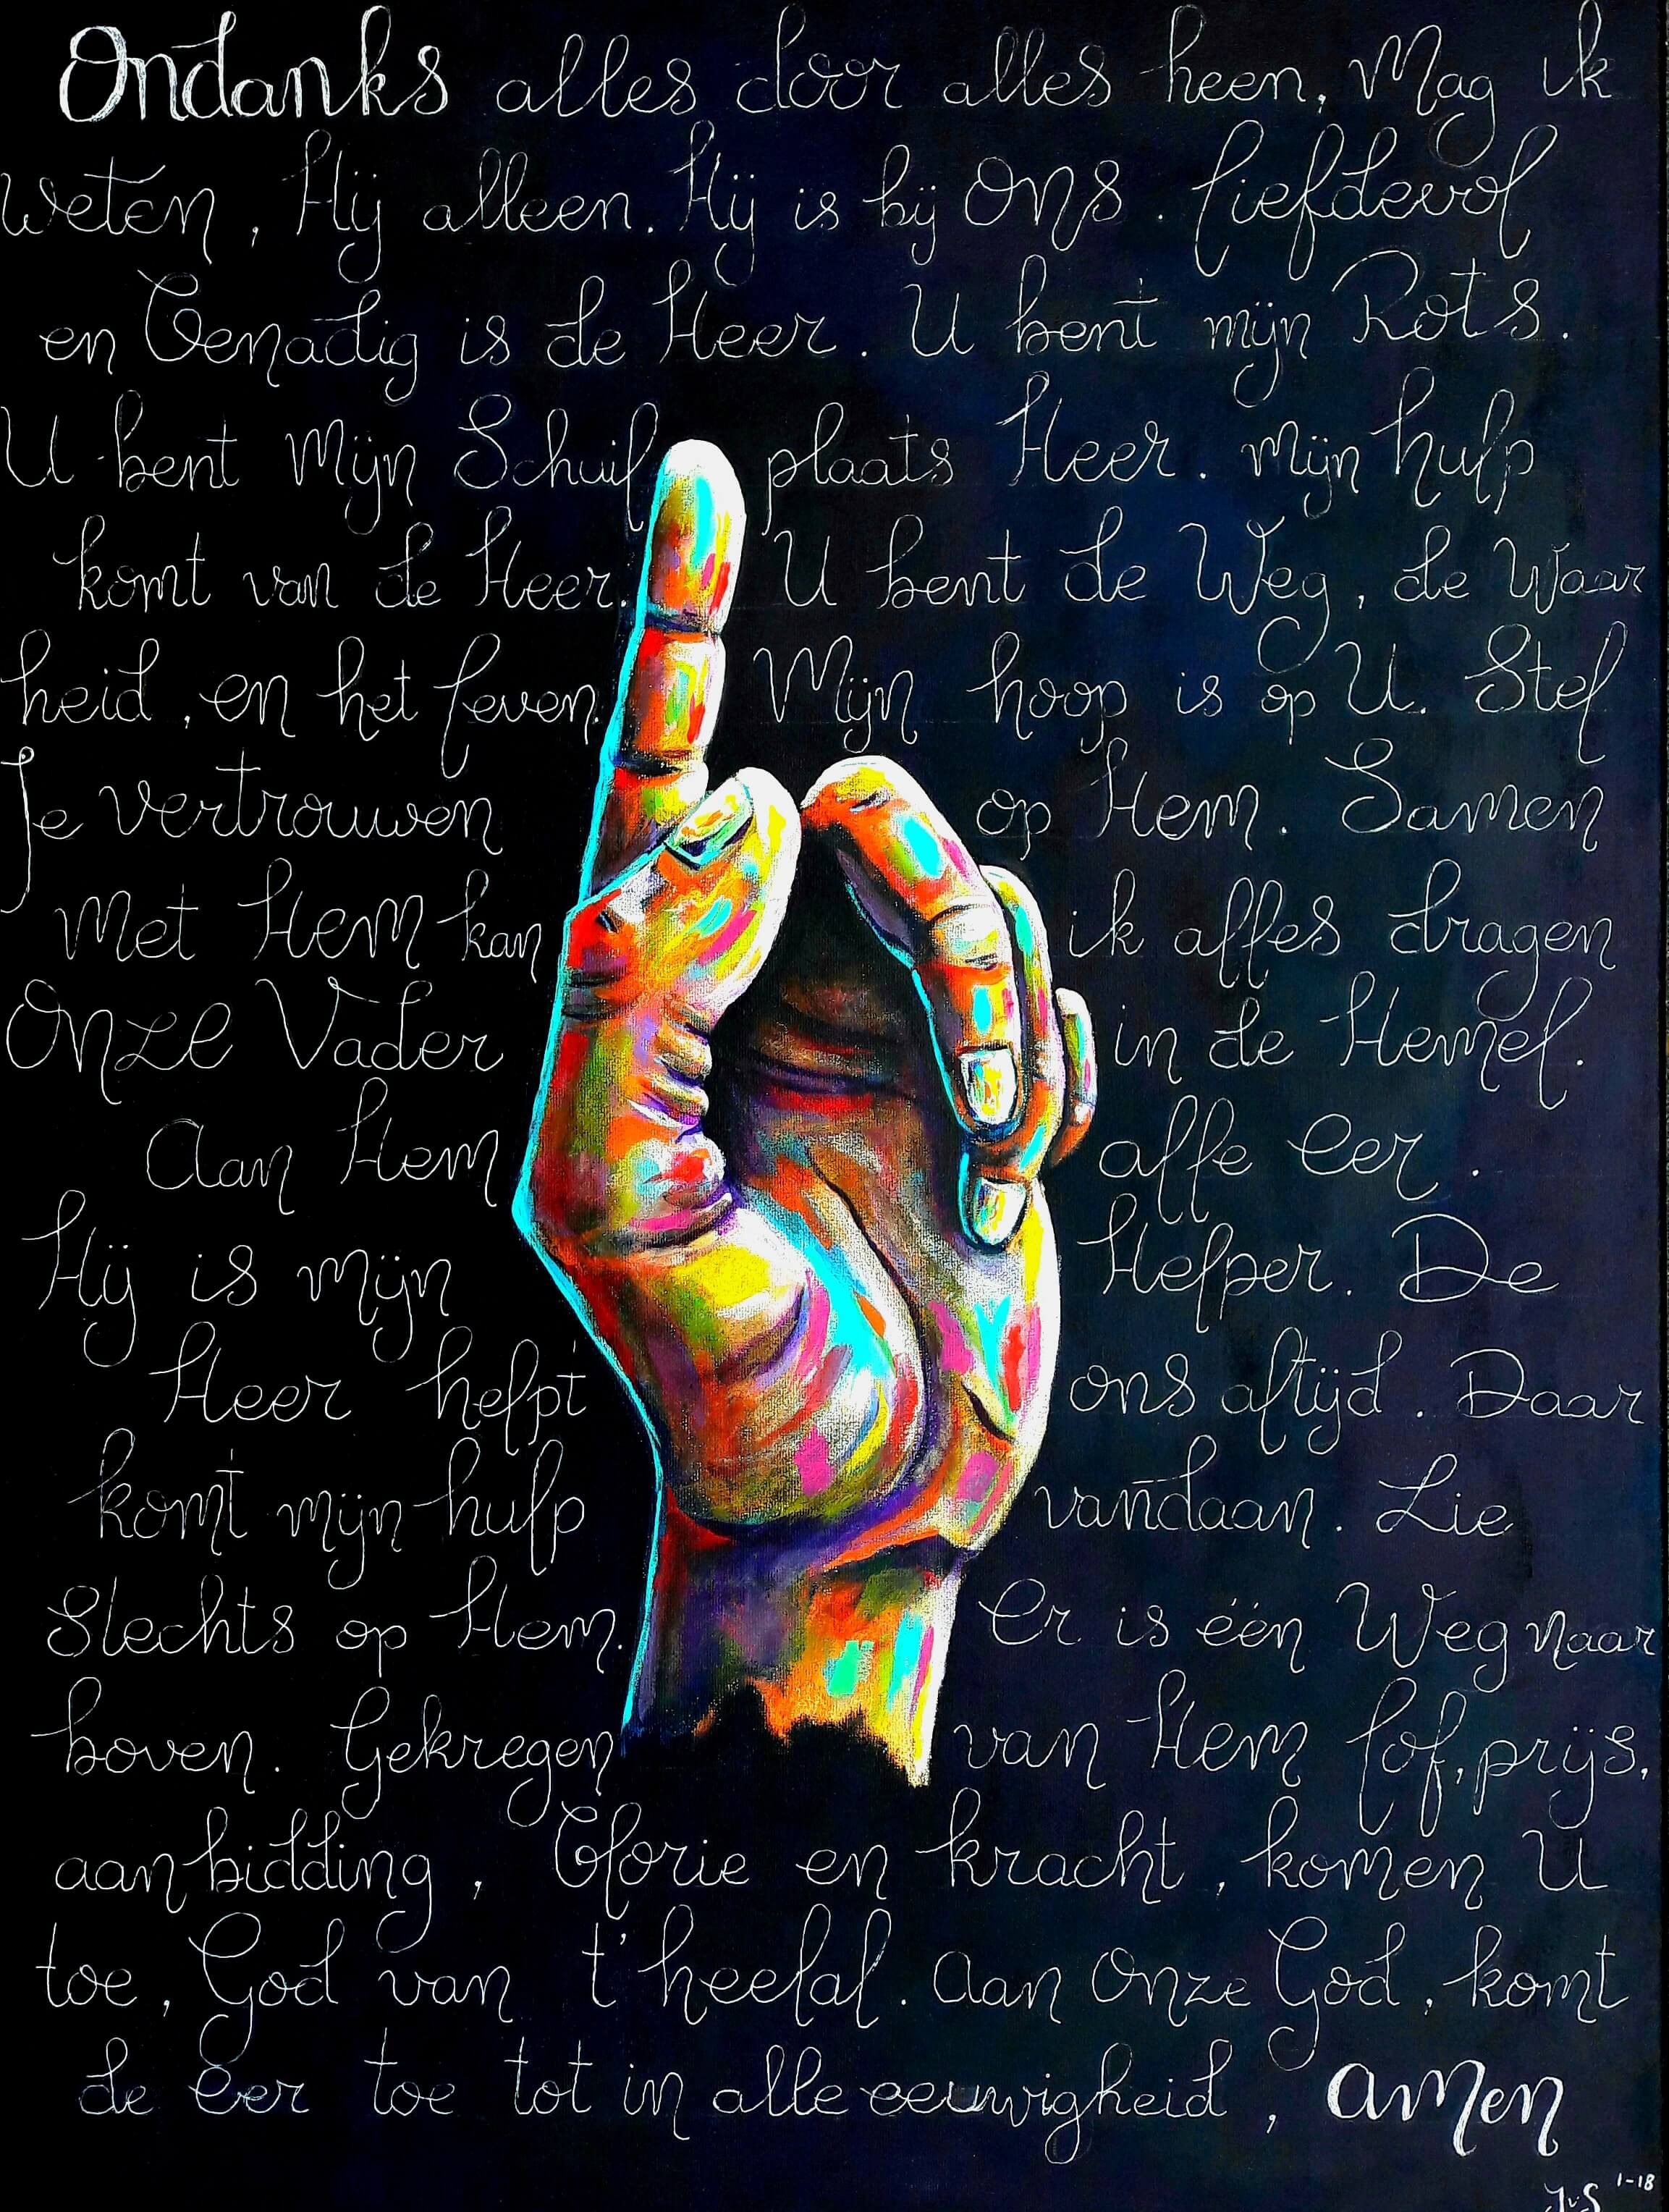 Ondanks alles door alles heen, Mag ik
weten, Hij alleen. Hij is bij Ons. liefdevol
en Genadig is de Heer. U bent mijn Rots.
U bent Mijn Schuilplaats Heer. Mijn hulp
komt van de Heer. U bent de Weg, de Waar
heid, en het leven. Mijn hoop is op U. Stel
Je vertrouwen op Hem. Samen
Met Hem kan ik alles dragen
Onze Vader in de Hemel.
Aan Hem alle eer.
Hij is mijn Helper. De
Heer helpt ons altijd. Daar
komt mijn hulp vandaan. Zie
Slechts op Hem. Er is één Weg naar
boven. Gekregen van Hem lof, prijs,
aanbidding, Glorie en kracht, komen U
toe, God van t' heelal. Aan Onze God, komt
de eer toe tot in alle eeuwigheid, Amen
JvS 1-18